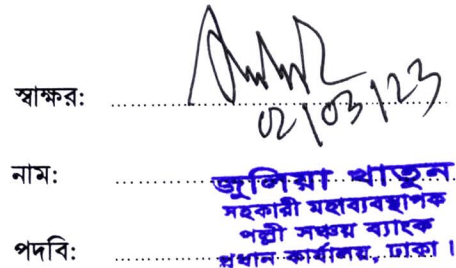 স্বাক্ষর: ....................
02/03/23
নাম: জুলিয়া খাতুন
সহকারী মহাব্যবস্থাপক
পল্লী সঞ্চয় ব্যাংক
পদবি: প্রধান কার্যালয়, ঢাকা।